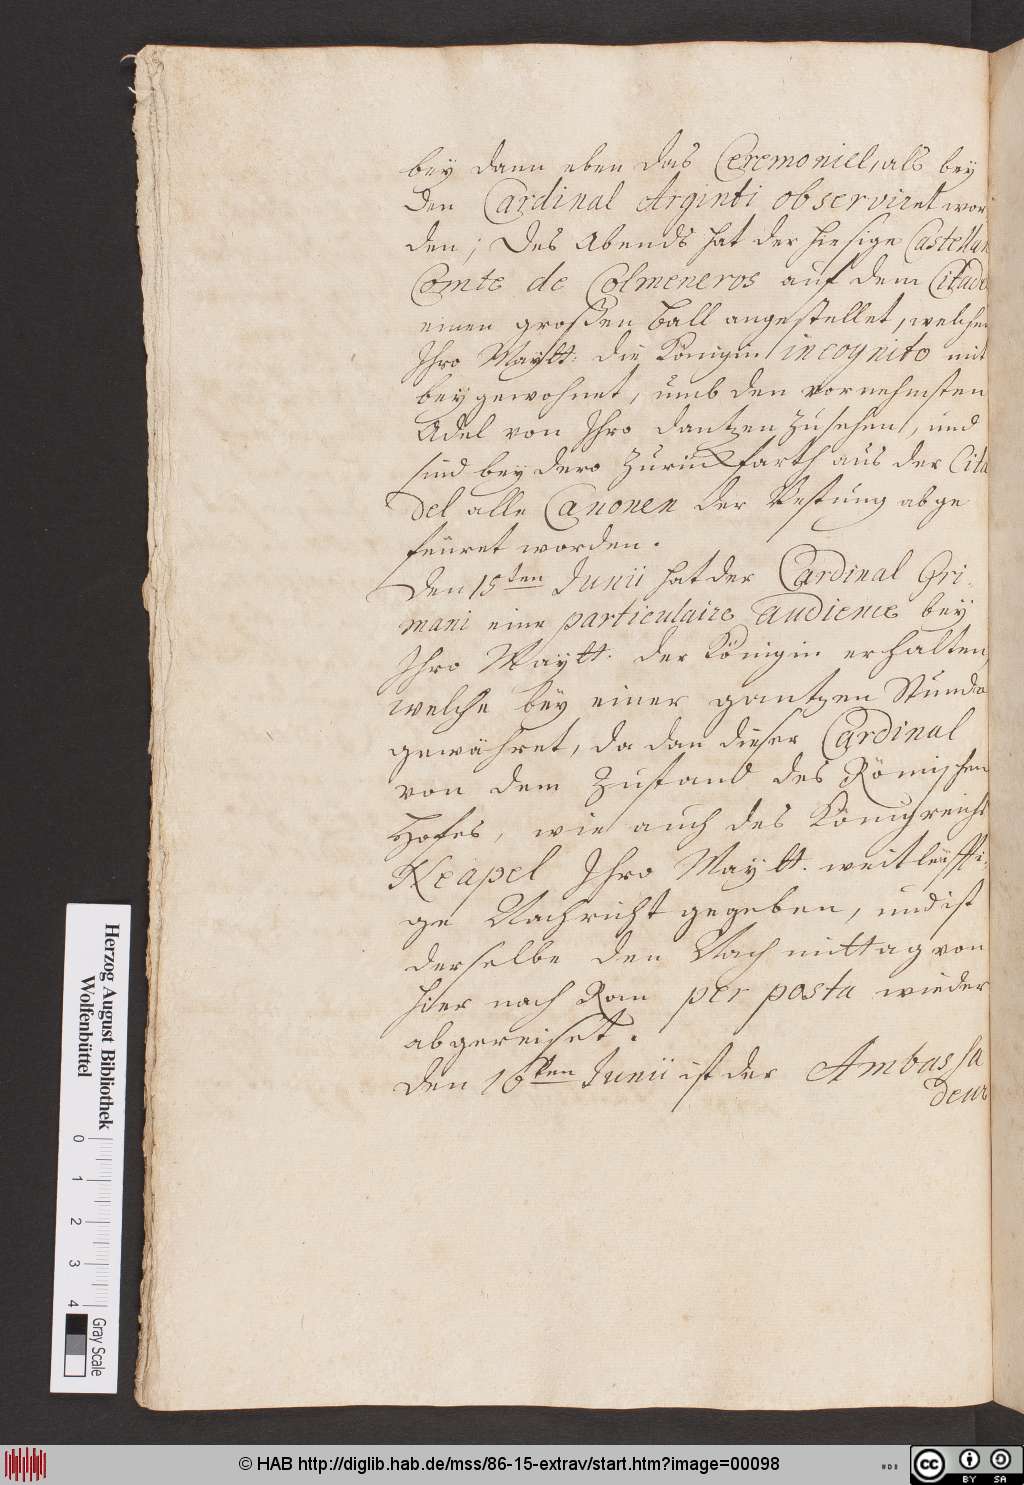 bey dann eben das Ceremoniel, als bey
den Cardinal Arginti observiret wor
den; des Abends hat der hiesige Castellan
Comte de Colmeneros auf dem Citadel
einen großen Ball angestellet, welchen
Ihro Maytt: die Königin incognito mit
beygewohnet, umb den vornehmsten
Adel von Ihro dantzen zusehen, und
sind bey dero Zurückfarth aus der Cita
del alle Canonen der Vestung abge
feüret worden.
Den 15ten Junii hat der Cardinal Gri-
mani eine particulaire audience bey
Ihro Maytt. der Königin erhalten,
welche bey einer gantzen Stunde
gewähret, da dan dieser Cardinal
von dem Zustand des Römischen
Hofes, wie auch des Königreichs
Neapel Ihro Maytt. weitleüffti-
ge Nachricht gegeben, und ist
derselbe den Nachmittag von
hier nach Rom per posta wieder
abgereiset.
Den 16ten Junii ist der Ambassa
deur
Herzog August Bibliothek
Wolfenbüttel
0 1 2 3 4
Gray Scale
© HAB http://diglib.hab.de/mss/86-15-extrav/start.htm?image=00098
cc BY SA